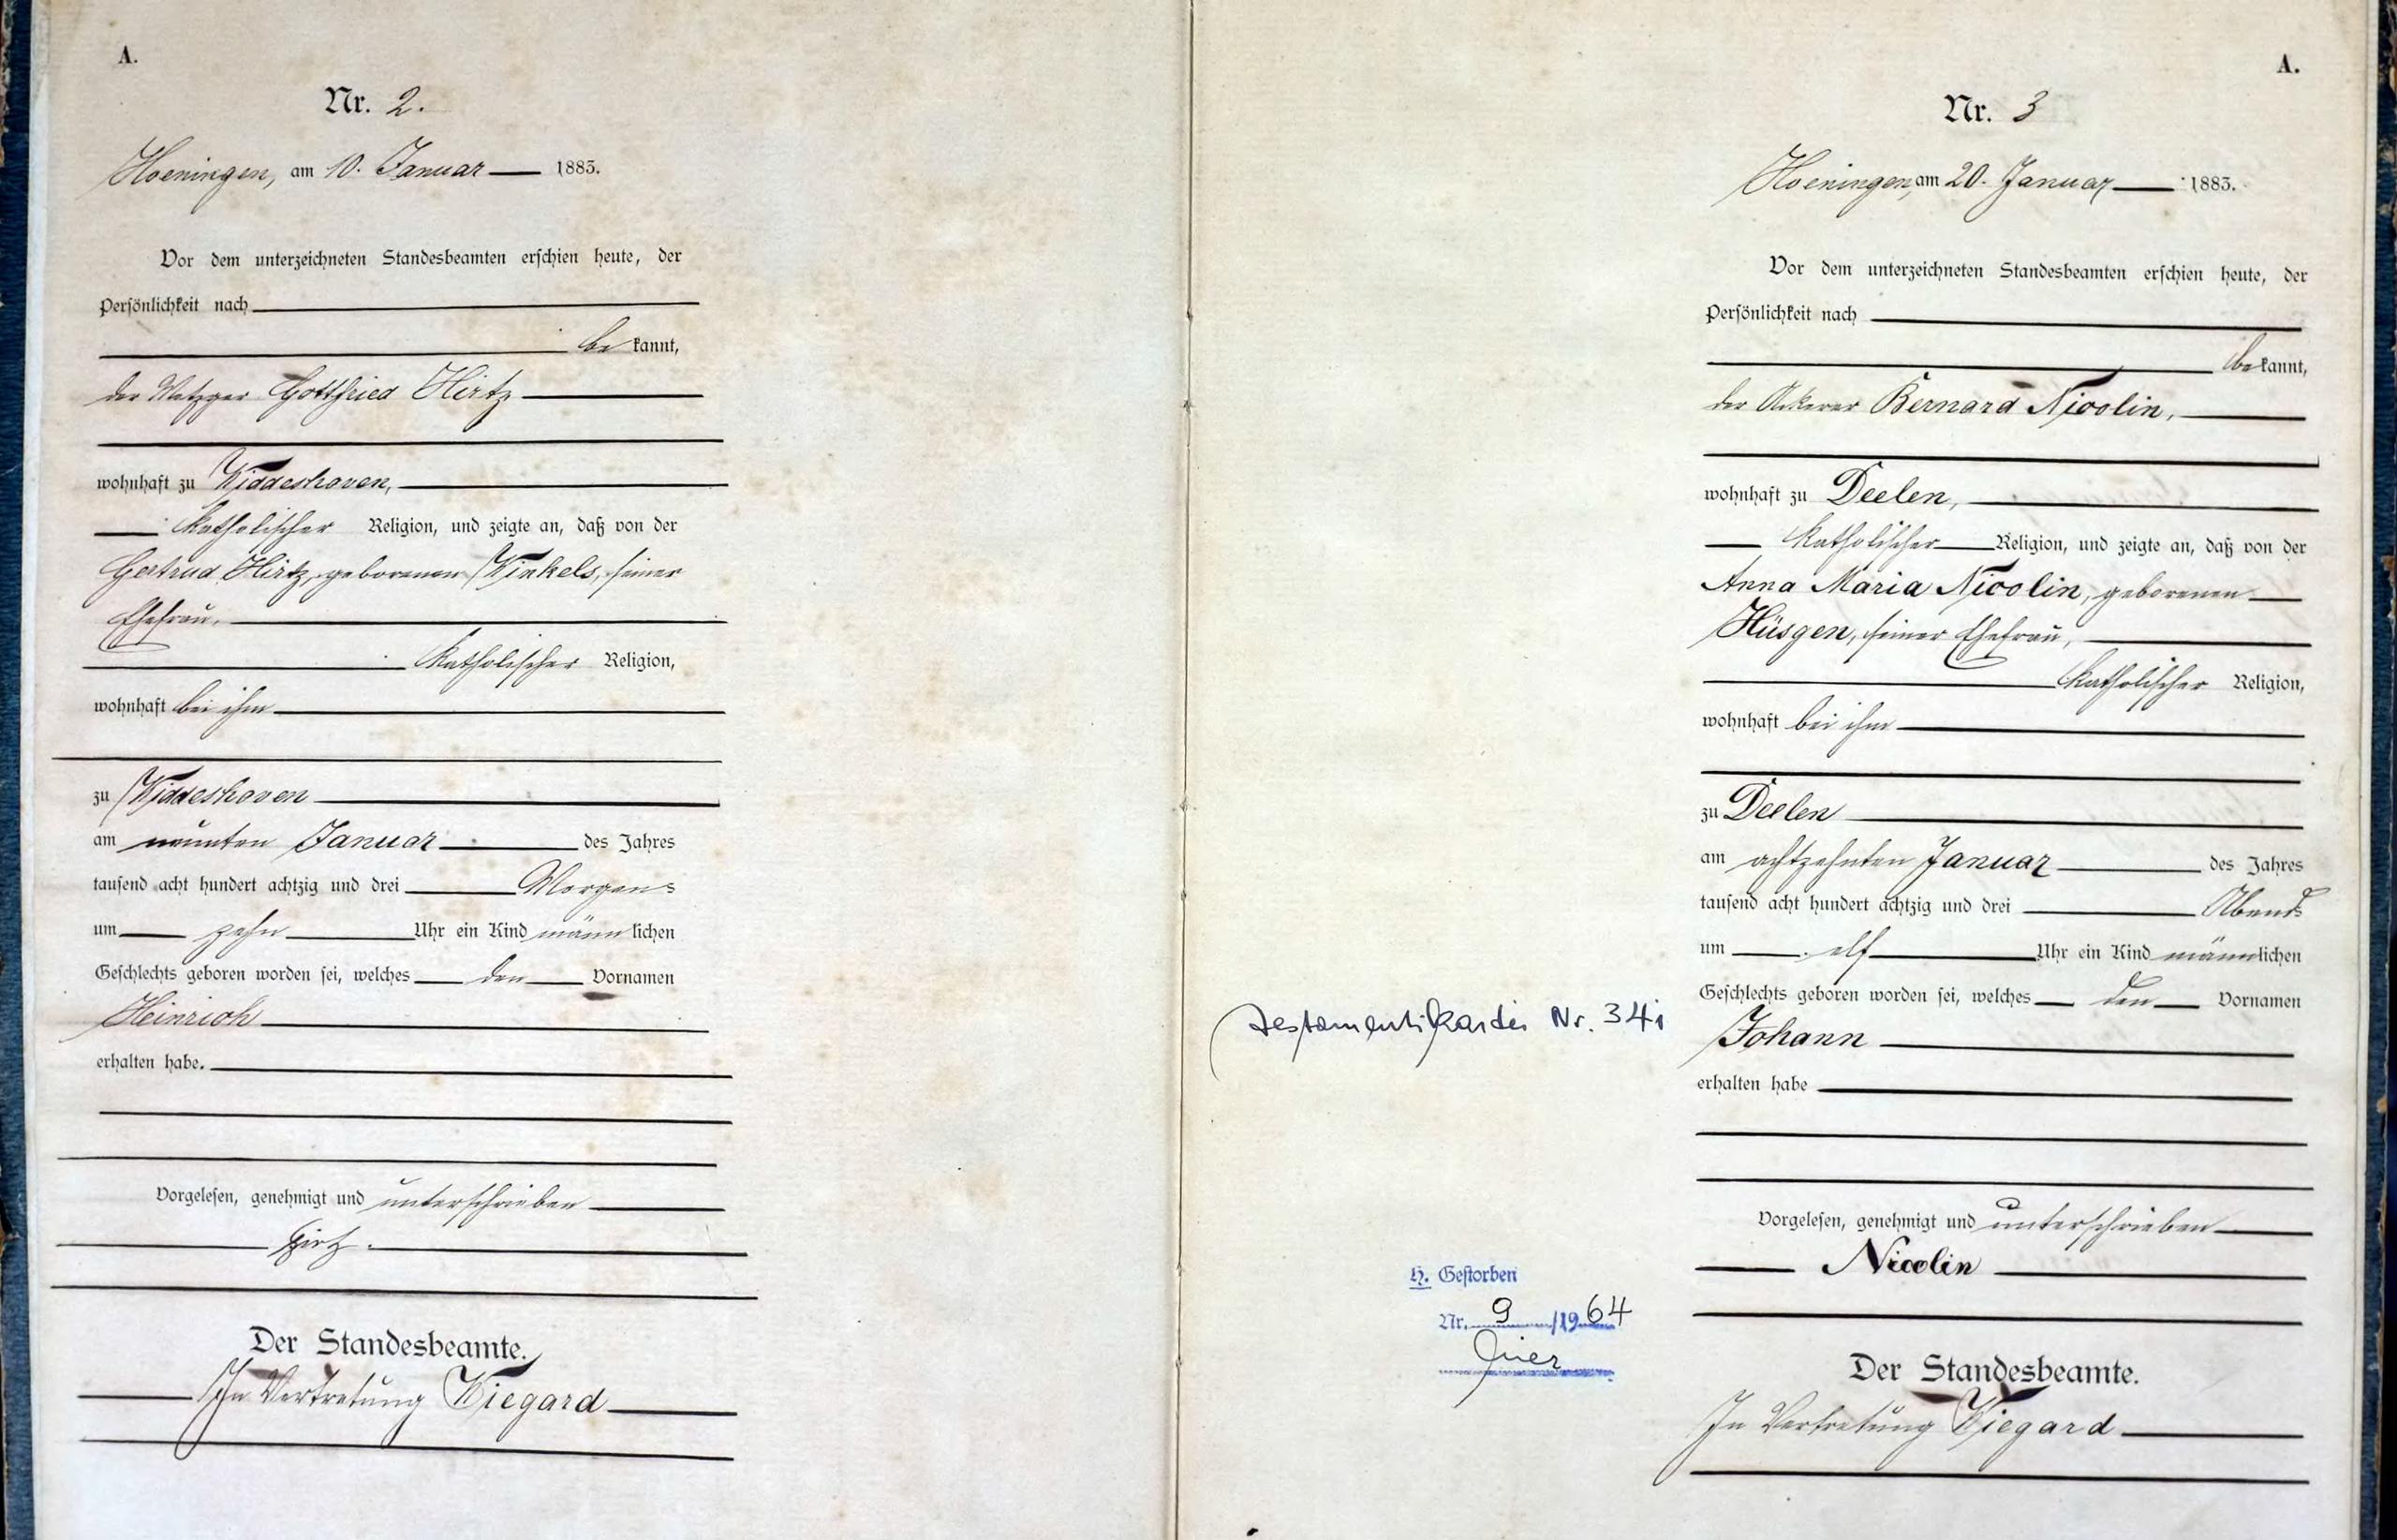 A.
Nr. 2.
Hoeningen, am 10. Januar 1883.
Vor dem unterzeichneten Standesbeamten erschien heute, der
Persönlichkeit nach
be kannt,
der Metzger Gottfried Hirtz
wohnhaft zu Widdeshoven,
katholischer Religion, und zeigte an, daß von der
Gertrud Hirtz, geborenen Winkels, seiner
Ehefrau,
katholischer Religion,
wohnhaft bei ihm
zu Widdeshoven
am neunten Januar des Jahres
tausend acht hundert achtzig und drei Morgens
um zehn Uhr ein Kind männlichen
Geschlechts geboren worden sei, welches den Vornamen
Heinrich
erhalten habe.
Vorgelesen, genehmigt und unterschrieben
Hirtz.
Der Standesbeamte.
In Vertretung Wiegard
A.
Nr. 3
Hoeningen, am 20. Januar 1883.
Vor dem unterzeichneten Standesbeamten erschien heute, der
Persönlichkeit nach
bekannt,
der Ackerer Bernard Nicolin,
wohnhaft zu Deelen,
katholischer Religion, und zeigte an, daß von der
Anna Maria Nicolin, geborenen
Hüsgen, seiner Ehefrau,
katholischer Religion,
wohnhaft bei ihm
zu Deelen
am achtzehnten Januar des Jahres
tausend acht hundert achtzig und drei Abends
um elf Uhr ein Kind männlichen
Geschlechts geboren worden sei, welches den Vornamen
Johann
erhalten habe
Vorgelesen, genehmigt und unterschrieben
Nicolin
Der Standesbeamte.
In Vertretung Wiegard
Nr. 34
H. Gestorben
Nr. 9 /1964